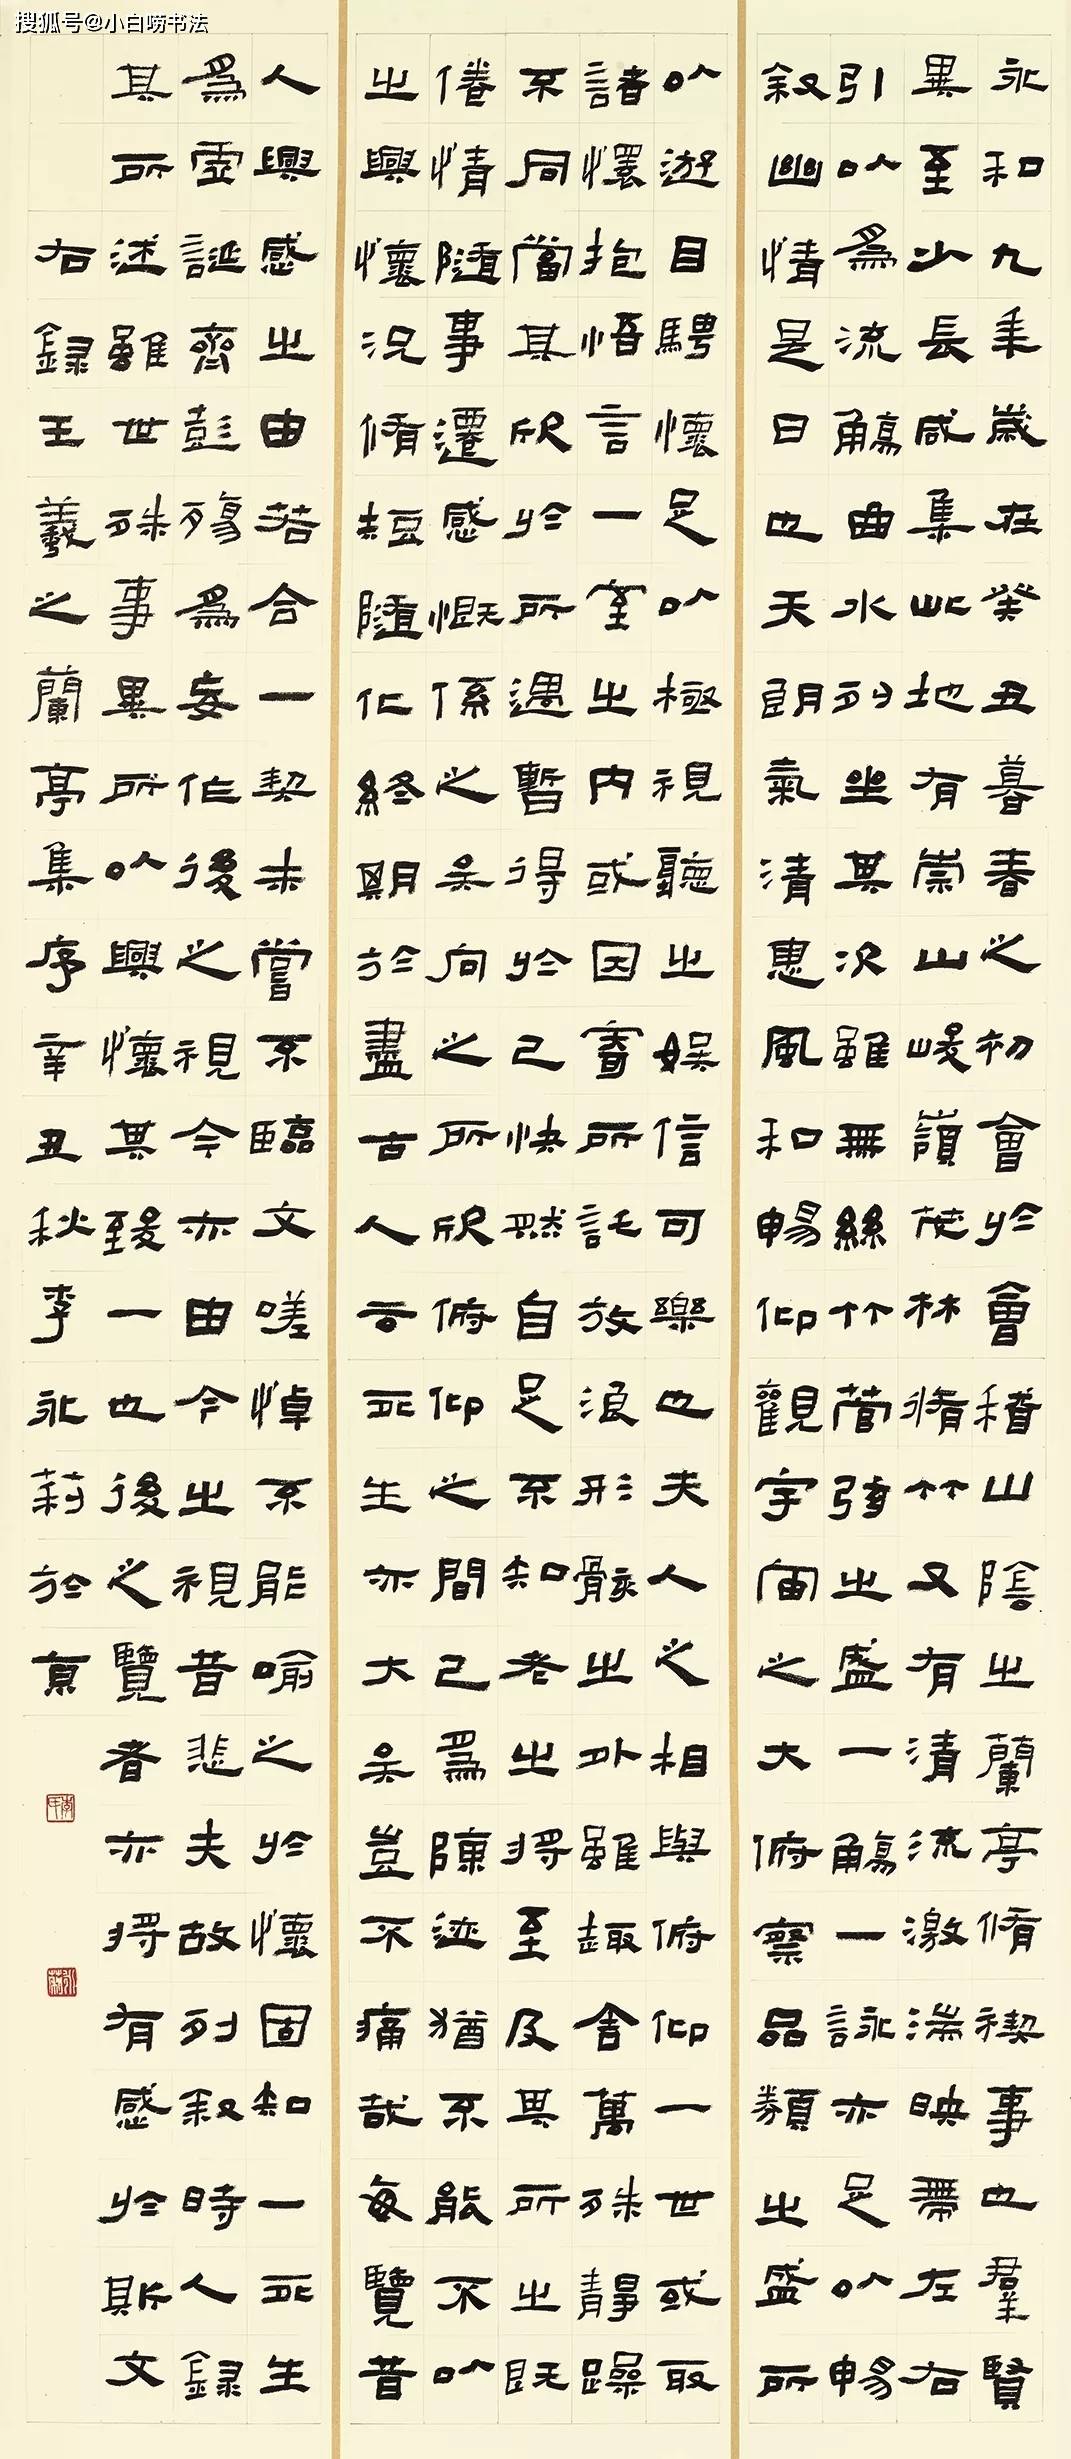 搜狐号@小白唠书法
永和九年歲在癸丑暮春之初會於會稽山陰之蘭亭脩禊事也羣賢
畢至少長咸集此地有崇山峻嶺茂林脩竹又有清流激湍映帶左右
引以為流觴曲水列坐其次雖無絲竹管弦之盛一觴一詠亦足以暢
敘幽情是日也天朗氣清惠風和暢仰觀宇宙之大俯察品類之盛所
以遊目騁懷足以極視聽之娛信可樂也夫人之相與俯仰一世或取
諸懷抱悟言一室之內或因寄所託放浪形骸之外雖趣舍萬殊靜躁
不同當其欣於所遇暫得於己快然自足不知老之將至及其所之既
倦情隨事遷感慨係之矣向之所欣俯仰之間已為陳迹猶不能不以
之興懷況脩短隨化終期於盡古人云死生亦大矣豈不痛哉每覽昔
人興感之由若合一契未嘗不臨文嗟悼不能喻之於懷固知一死生
為虛誕齊彭殤為妄作後之視今亦由今之視昔悲夫故列敘時人錄
其所述雖世殊事異所以興懷其致一也後之覽者亦將有感於斯文
右錄王羲之蘭亭集序辛丑秋李永莉於京